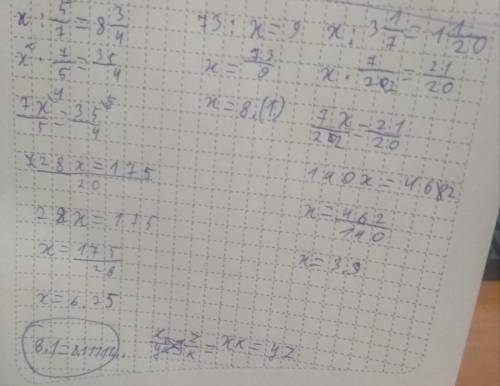 x : 5/7 = 8 3/4
x · 7/5 = 35/4
7x/5 = 35/4
28x = 175
x = 175/28
x = 6.25
73 : x = 9
x = 73/9
x = 8,(1)
x : 3 1/7 = 1 1/20
x · 7/22 = 21/20
7x/22 = 21/20
140x = 462
x = 462/140
x = 3.3
= xx = yz